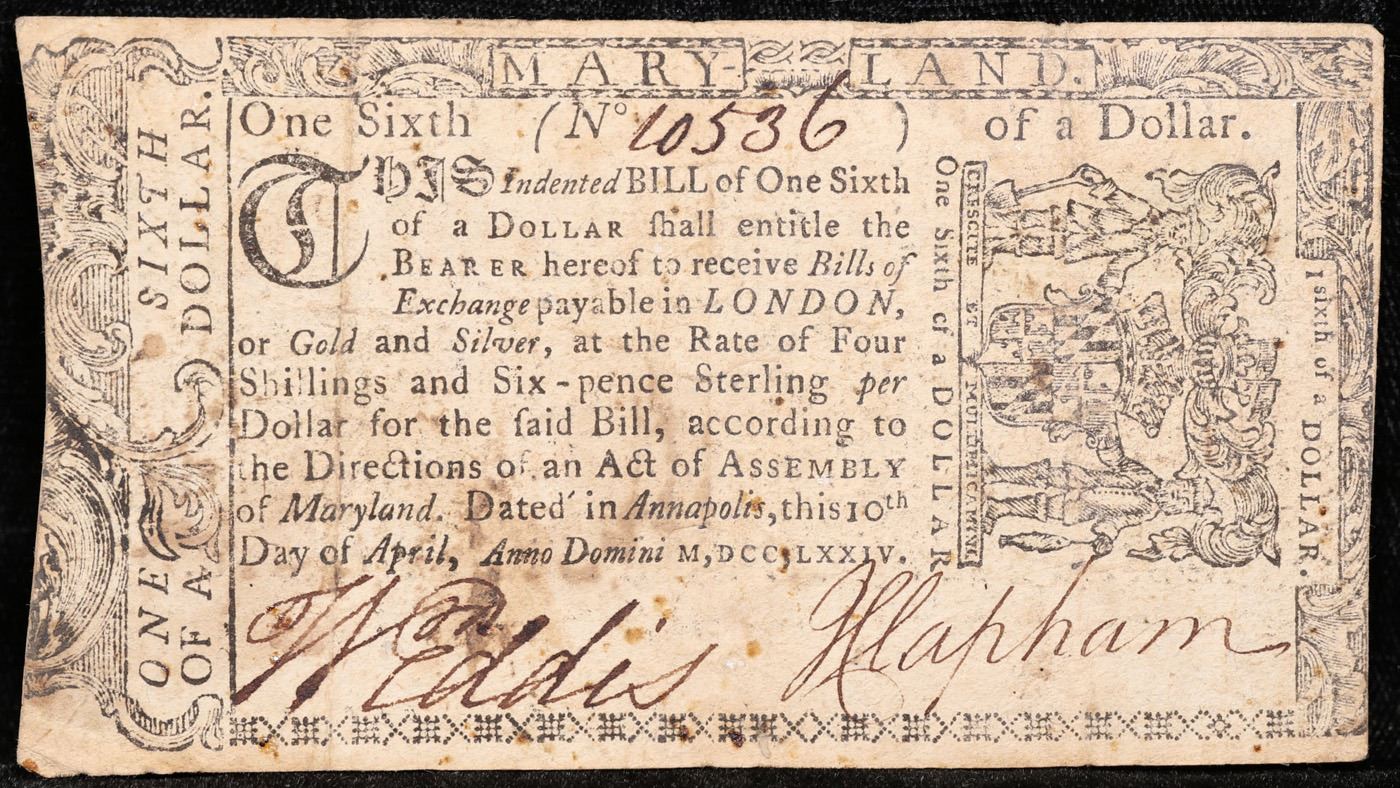 MARY-LAND.
One Sixth (No 10536) of a Dollar.
THIS Indented BILL of One Sixth
of a DOLLAR ſhall entitle the
BEARER hereof to receive Bills of
Exchange payable in LONDON,
or Gold and Silver, at the Rate of Four
Shillings and Six-pence Sterling per
Dollar for the ſaid Bill, according to
the Directions of an Act of ASSEMBLY
of Maryland. Dated in Annapolis, this 10th
Day of April, Anno Domini M,DCC,LXXIV.
W Eddis JClapham
ONE SIXTH
OF A DOLLAR.
One Sixth of a DOLLAR
CRESCITE ET MULTIPLICAMINI
1 sixth of a DOLLAR.